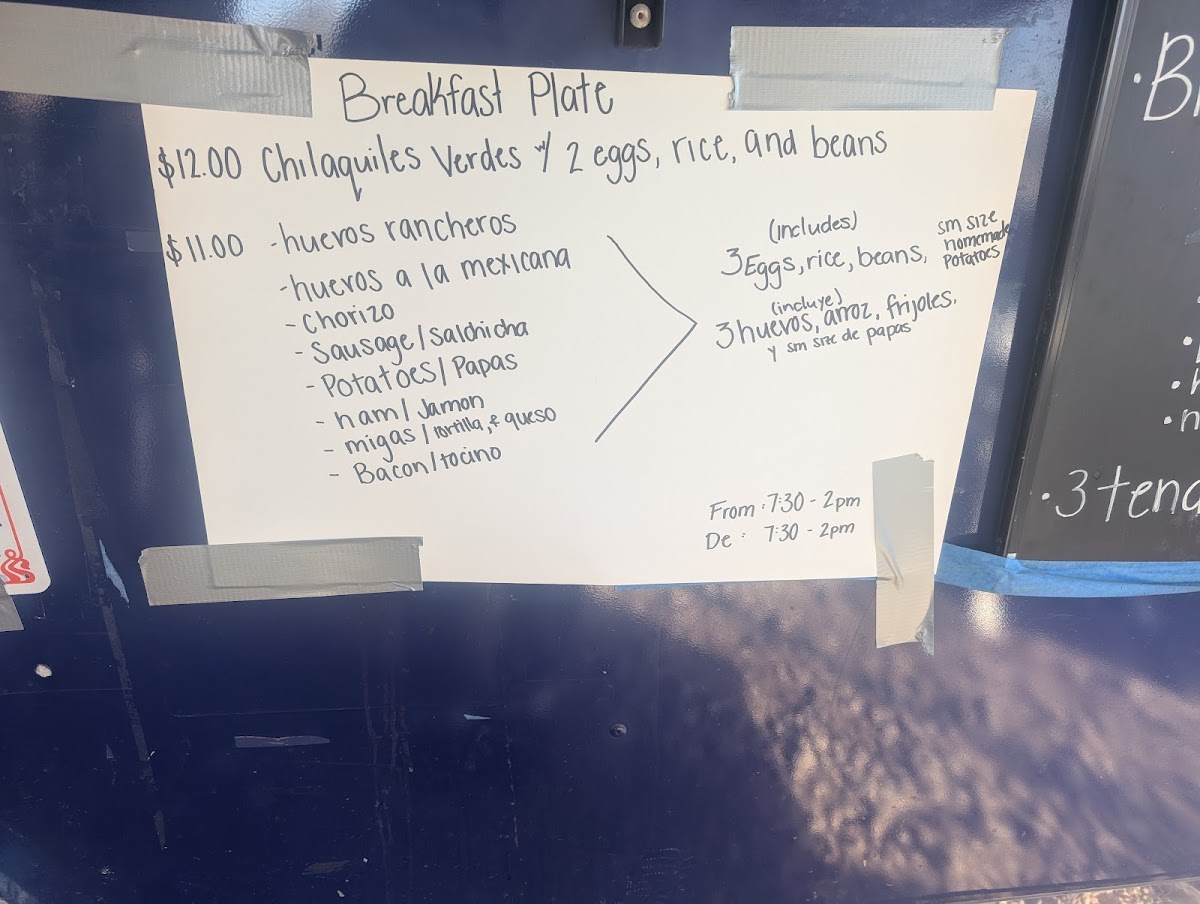 Breakfast Plate
$12.00 Chilaquiles Verdes w/ 2 eggs, rice, and beans
$11.00 - huevos rancheros
- huevos a la mexicana
- Chorizo
- Sausage / Salchicha
- Potatoes / Papas
- ham / Jamon
- migas / tortilla, & queso
- Bacon / tocino
(includes)
3 Eggs, rice, beans, sm size homemade potatoes
(incluye)
3 huevos, arroz, frijoles,
y sm size de papas
From: 7:30 - 2pm
De: 7:30 - 2pm
· 3